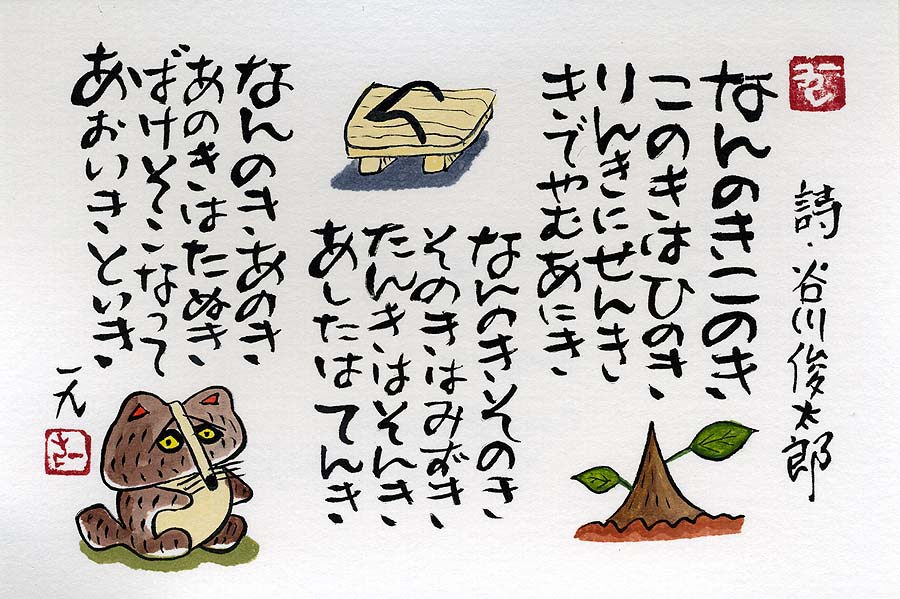 詩・谷川俊太郎
なんのきこのき
このきはひのき
りんきにせんき
きでやむあにき
なんのきそのき
そのきはみずき
たんきはそんき
あしたはてんき
なんのきあのき
あのきはたぬき
ばけそこなって
あおいきといき
一九